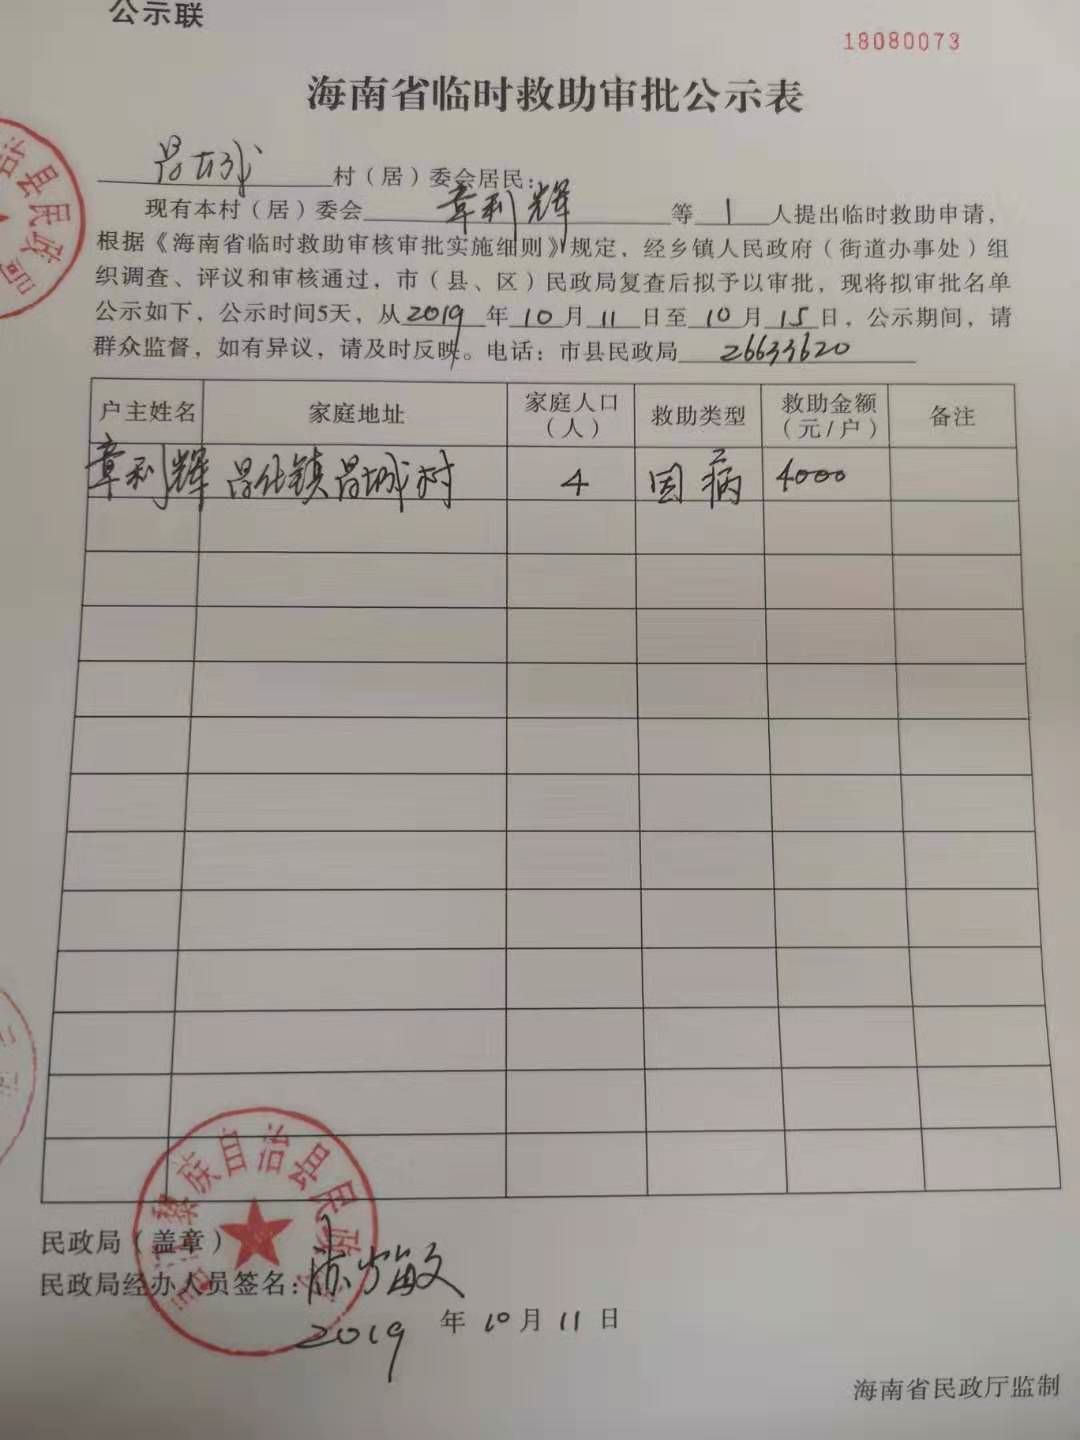 公示联
18080073
海南省临时救助审批公示表
昌城村（居）委会居民：
现有本村（居）委会章利辉等1人提出临时救助申请，
根据《海南省临时救助审核审批实施细则》规定，经乡镇人民政府（街道办事处）组
织调查、评议和审核通过，市（县、区）民政局复查后拟予以审批，现将拟审批名单
公示如下，公示时间5天，从2019年10月11日至10月15日，公示期间，请
群众监督，如有异议，请及时反映。电话：市县民政局26633620
户主姓名 家庭地址 家庭人口（人） 救助类型 救助金额（元/户） 备注
章利辉 昌化镇昌城村 4 因病 4000
民政局（盖章）
民政局经办人员签名：陈
2019年10月11日
海南省民政厅监制
治县民政局
黎族自治县民政